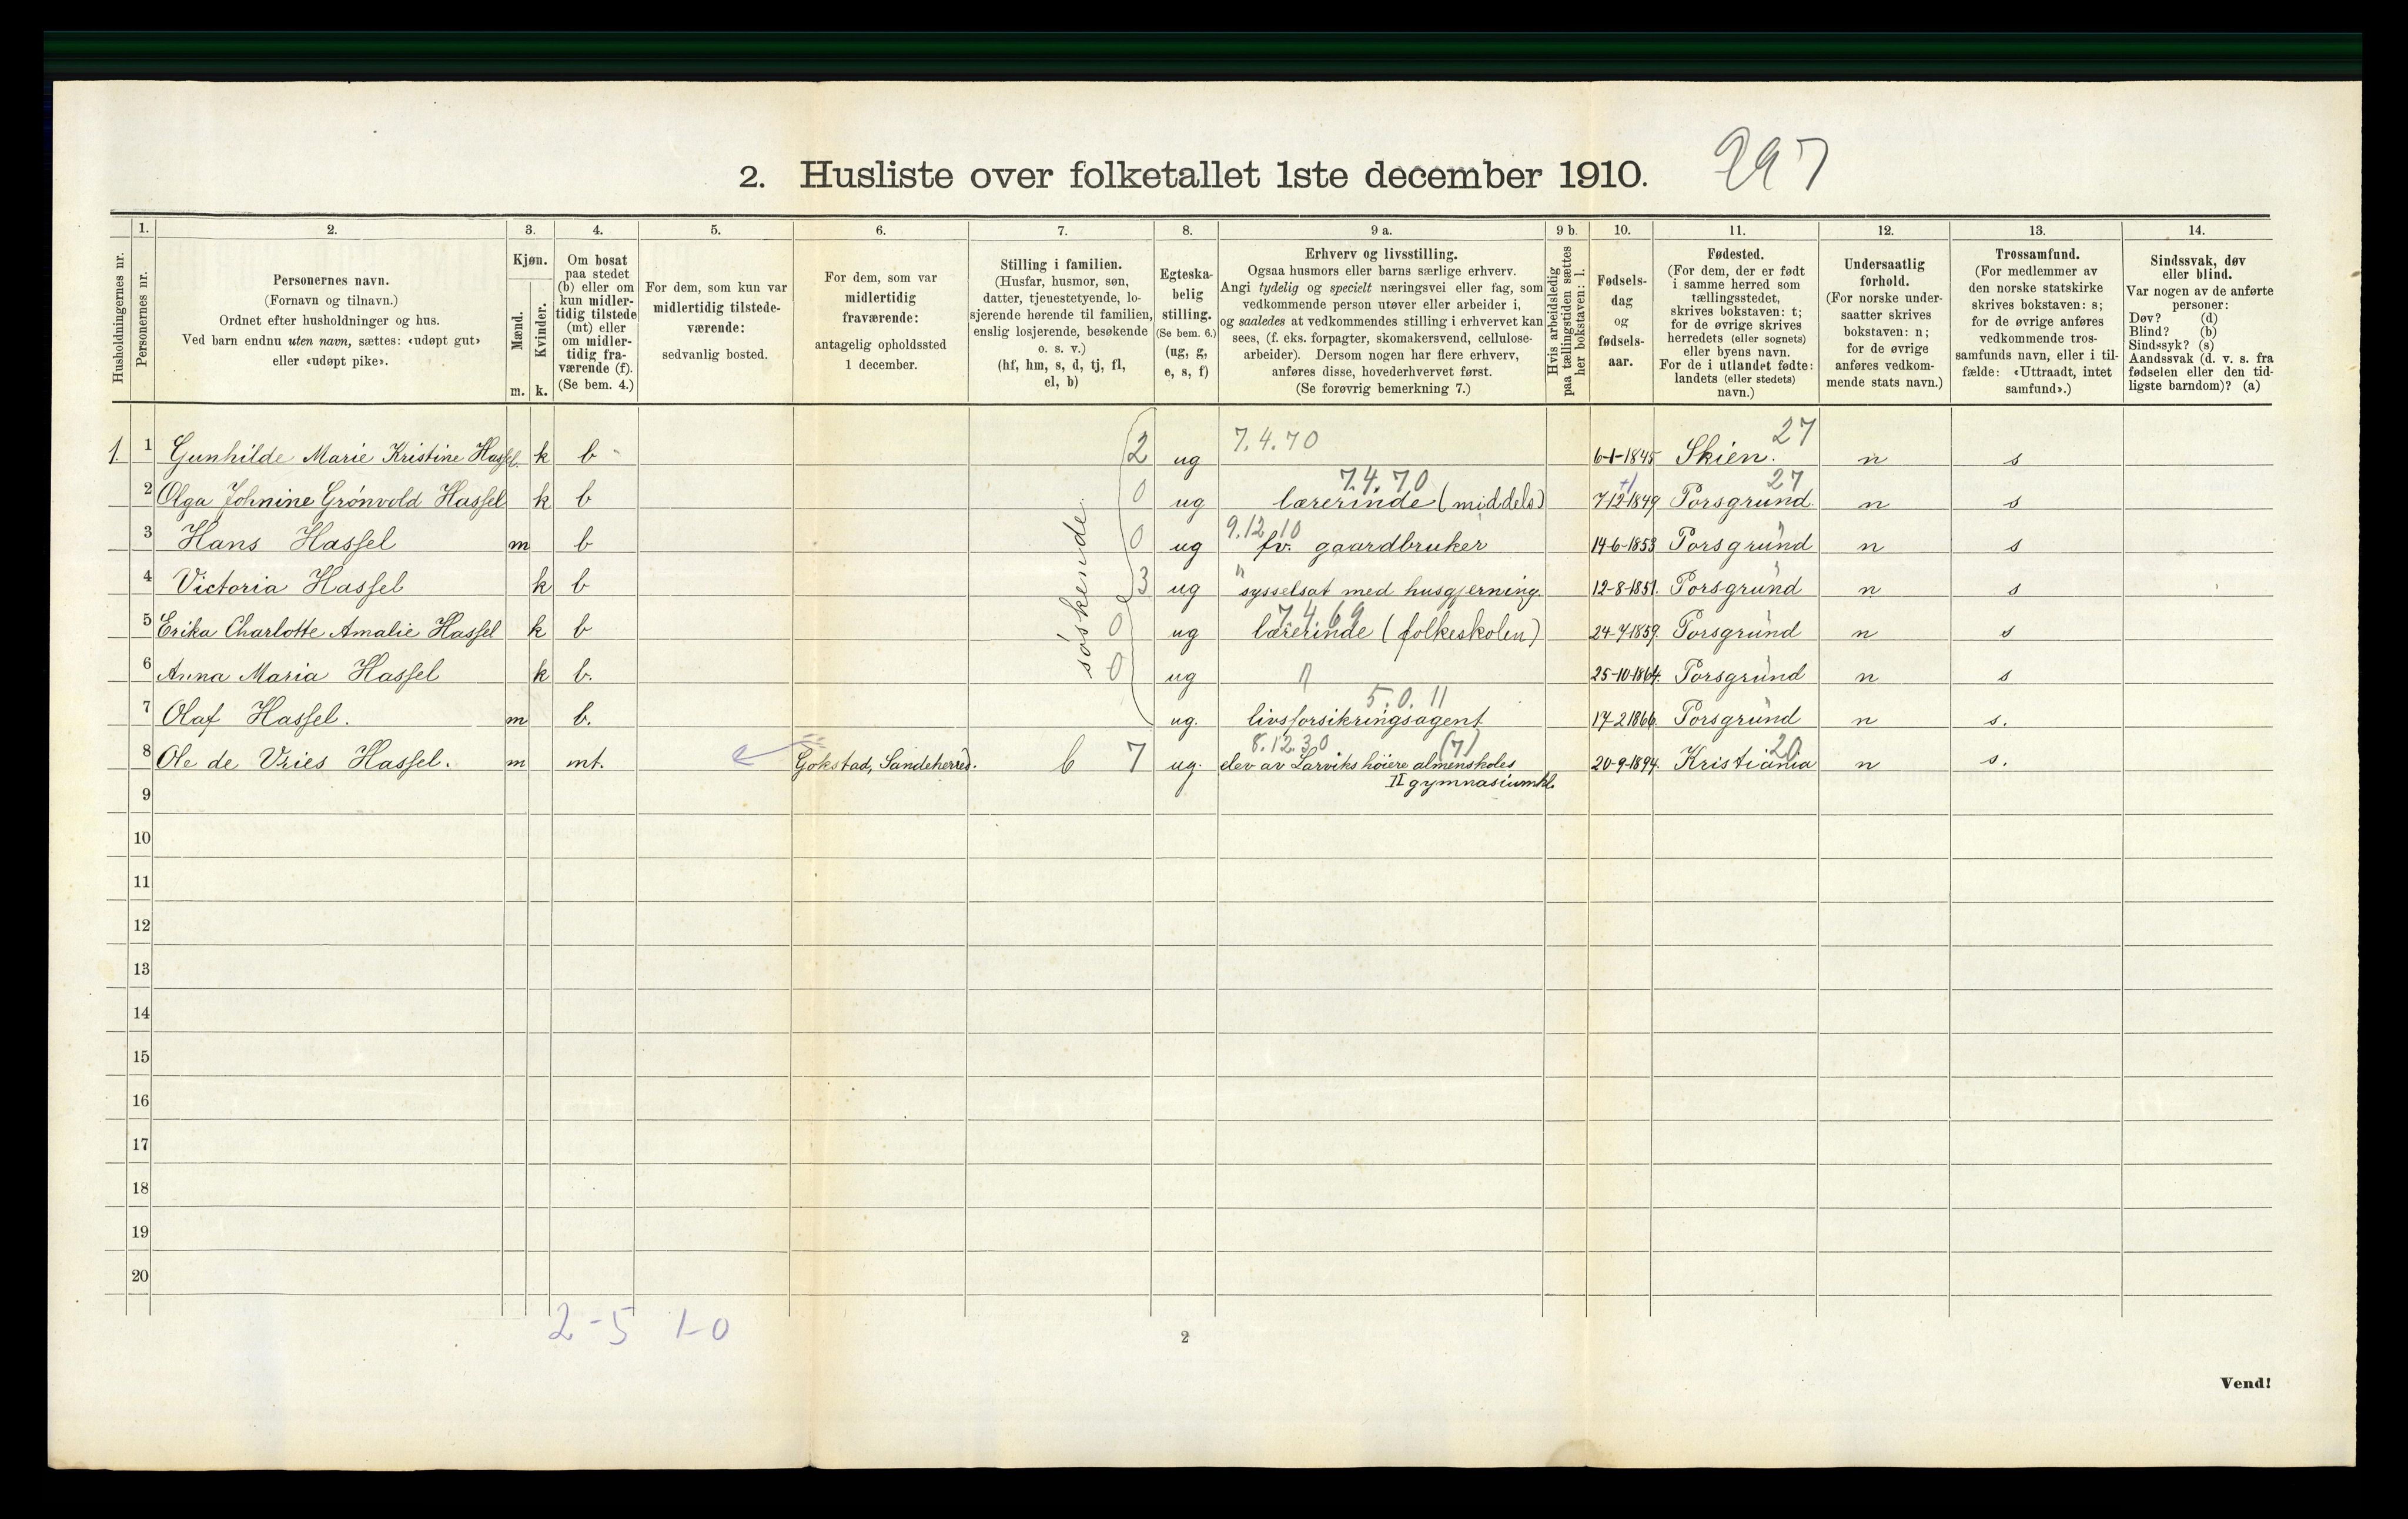 2. Husliste over folketallet 1ste december 1910. 297
Husholdningernes nr.
1.
Personernes nr.
2.
Personernes navn.
(Fornavn og tilnavn.)
Ordnet efter husholdninger og hus.
Ved barn endnu uten navn, sættes: «udøpt gut»
eller «udøpt pike».
3.
Kjøn.
Mænd.
m.
Kvinder.
k.
4.
Om bosat
paa stedet
(b) eller om
kun midler-
tidig tilstede
(mt) eller
om midler-
tidig fra-
værende (f).
(Se bem. 4.)
5.
For dem, som kun var
midlertidig tilstede-
værende:
sedvanlig bosted.
6.
For dem, som var
midlertidig
fraværende:
antagelig opholdssted
1 december.
7.
Stilling i familien.
(Husfar, husmor, søn,
datter, tjenestetyende, lo-
sjerende hørende til familien,
enslig losjerende, besøkende
o. s. v.)
(hf, hm, s, d, tj, fl,
el, b)
8.
Egteska-
belig
stilling.
(Se bem. 6.)
(ug, g,
e, s, f)
9 a.
Erhverv og livsstilling.
Ogsaa husmors eller barns særlige erhverv.
Angi tydelig og specielt næringsvei eller fag, som
vedkommende person utøver eller arbeider i,
og saaledes at vedkommendes stilling i erhvervet kan
sees, (f. eks. forpagter, skomakersvend, cellulose-
arbeider). Dersom nogen har flere erhverv,
anføres disse, hovederhvervet først.
(Se forøvrig bemerkning 7.)
9 b.
Hvis arbeidsledig
paa tællingstiden sættes
her bokstaven: l.
10.
Fødsels-
dag
og
fødsels-
aar.
11.
Fødested.
(For dem, der er født
i samme herred som
tællingsstedet,
skrives bokstaven: t;
for de øvrige skrives
herredets (eller sognets)
eller byens navn.
For de i utlandet fødte:
landets (eller stedets)
navn.)
12.
Undersaatlig
forhold.
(For norske under-
saatter skrives
bokstaven: n;
for de øvrige
anføres vedkom-
mende stats navn.)
13.
Trossamfund.
(For medlemmer av
den norske statskirke
skrives bokstaven: s;
for de øvrige anføres
vedkommende tros-
samfunds navn, eller i til-
fælde: «Uttraadt, intet
samfund».)
14.
Sindssvak, døv
eller blind.
Var nogen av de anførte
personer:
Døv? (d)
Blind? (b)
Sindssyk? (s)
Aandssvak (d. v. s. fra
fødselen eller den tid-
ligste barndom)? (a)
7.4.70 27
1. 1 Gunhilde Marie Kristine Hassel. k b 2 ug 6-1-1845 Skien. n s
7.4.70 27
2 Olga Johnine Grønvold Hassel k b 0 ug lærerinde (middels) 7-12-1849 Porsgrund. n s
9.12.10
3 Hans Hassel m b 0 ug fv. gaardbruker 14-6-1853 Porsgrund n s
søskende.
4 Victoria Hassel k b 3 ug sysselsat med husgjerning. 12-8-1851. Porsgrund n s
7 4 69
5 Erika Charlotte Amalie Hassel k b 0 ug lærerinde (folkeskolen) 24-7-1859. Porsgrund n s
6 Anna Maria Hassel k b. 0 ug " 25-10-1864. Porsgrund n s
5.0.11
7 Olaf Hassel. m b. ug. livsforsikringsagent 17-2 1866. Porsgrund n s.
8.12.30 (7) 20
8 Ole de Vries Hassel. m mt. Gokstad, Sandeherred. b 7 ug. elev av Larviks høiere almenskoles 20-9-1894. Kristiania n s.
II gymnasiumkl.
9
10
11
12
13
14
15
16
17
18
19
20
2-5 1-0
2
Vend!